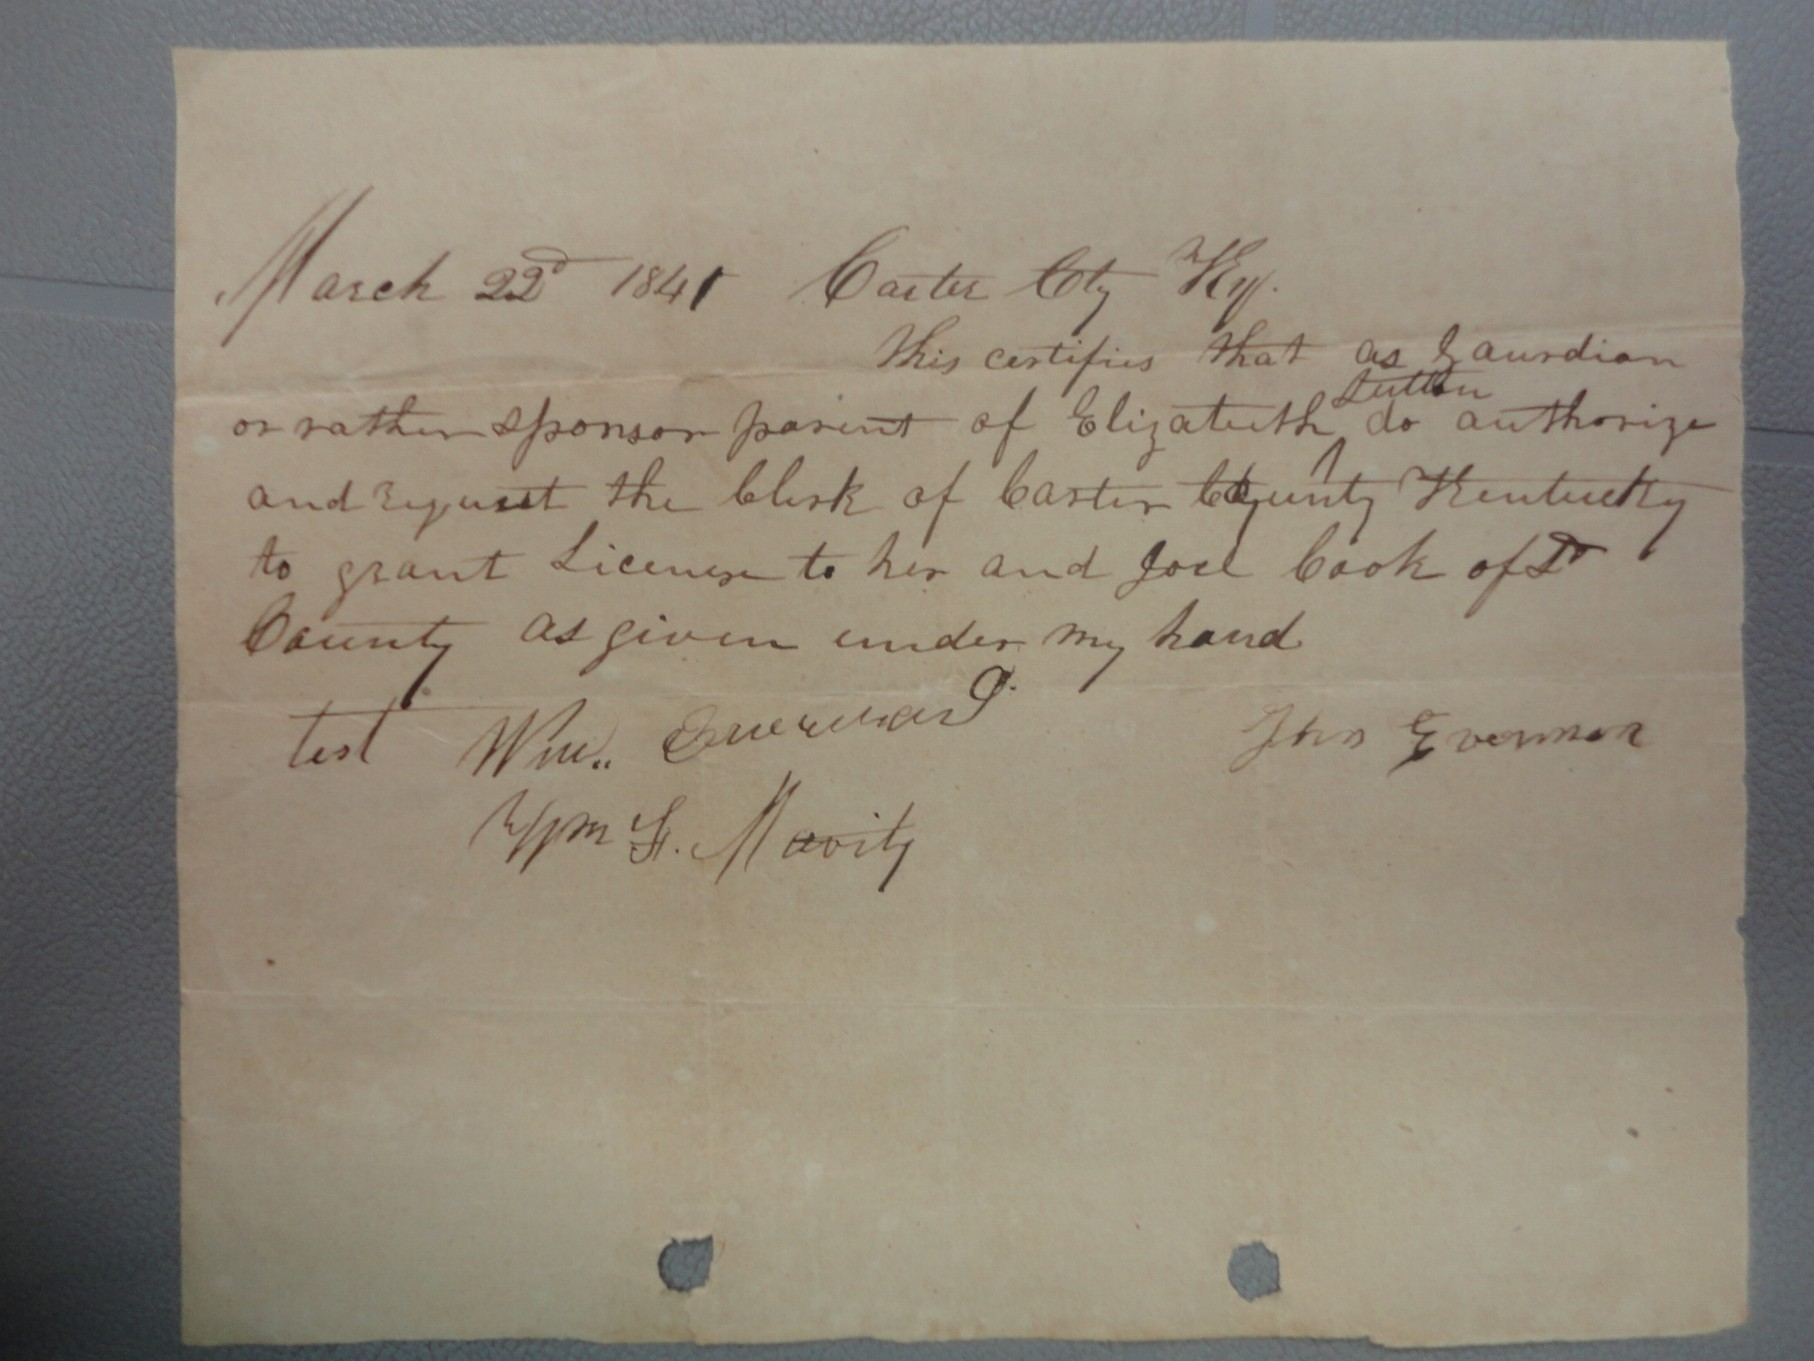 March 22d 1841 Carter Cty Ky.
this certifies that as Gaurdian
or rather sponsor parent of Elizabeth Sutton do authorize
and request the Clerk of Carter County Kentucky
to grant License to her and Joel Cook of sd
County as given under my hand
test Wm. Everman
Jhn Everman
Wm G. Mavity